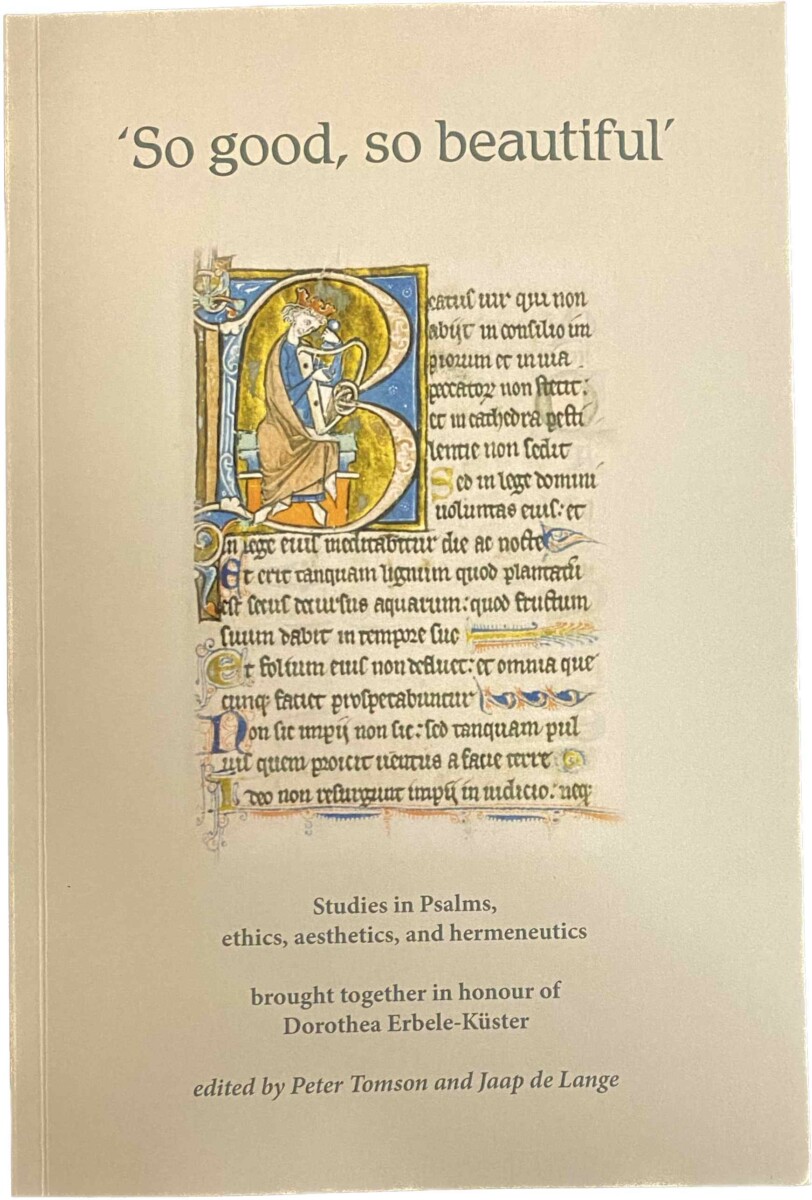 ‘So good, so beautiful’
Beatus uir qui non
abijt in consilio im
piorum et in uia
peccatoꝝ non stetit:
et in cathedra pesti
lentie non sedit
Sed in lege domini
uoluntas eius: et
in lege eius meditabitur die ac nocte
Et erit tanquam lignum quod plantatū
est secus decursus aquarum: quod fructum
suum dabit in tempore suo
Et folium eius non defluet: et omnia que
cunqꝫ faciet prosperabuntur
Non sic impij non sic: sed tanquam pul
uis quem proicit uentus a facie terre
Ideo non resurgunt impij in iudicio: neqꝫ
Studies in Psalms,
ethics, aesthetics, and hermeneutics
brought together in honour of
Dorothea Erbele-Küster
edited by Peter Tomson and Jaap de Lange